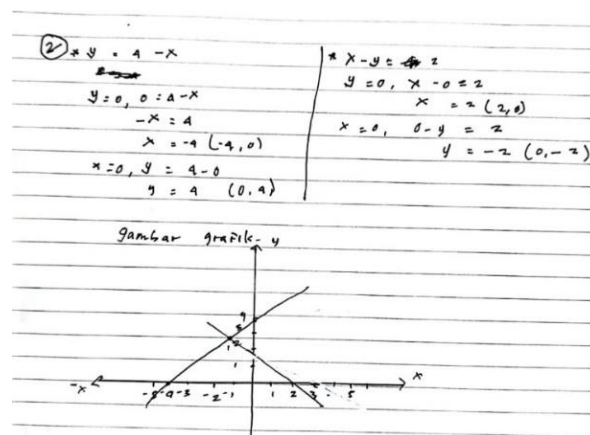 2 * y = 4 - x
y=0, 0 = 4 - x
-x = 4
x = -4 (-4, 0)
x=0, y = 4-0
y = 4 (0, 4)
* x - y = 2
y = 0, x - 0 = 2
x = 2 (2, 0)
x = 0, 0 - y = 2
y = -2 (0, -2)
gambar grafik- y
4
3
2
1
1
-x -5 -4 -3 -2 -1 1 2 3 5 x